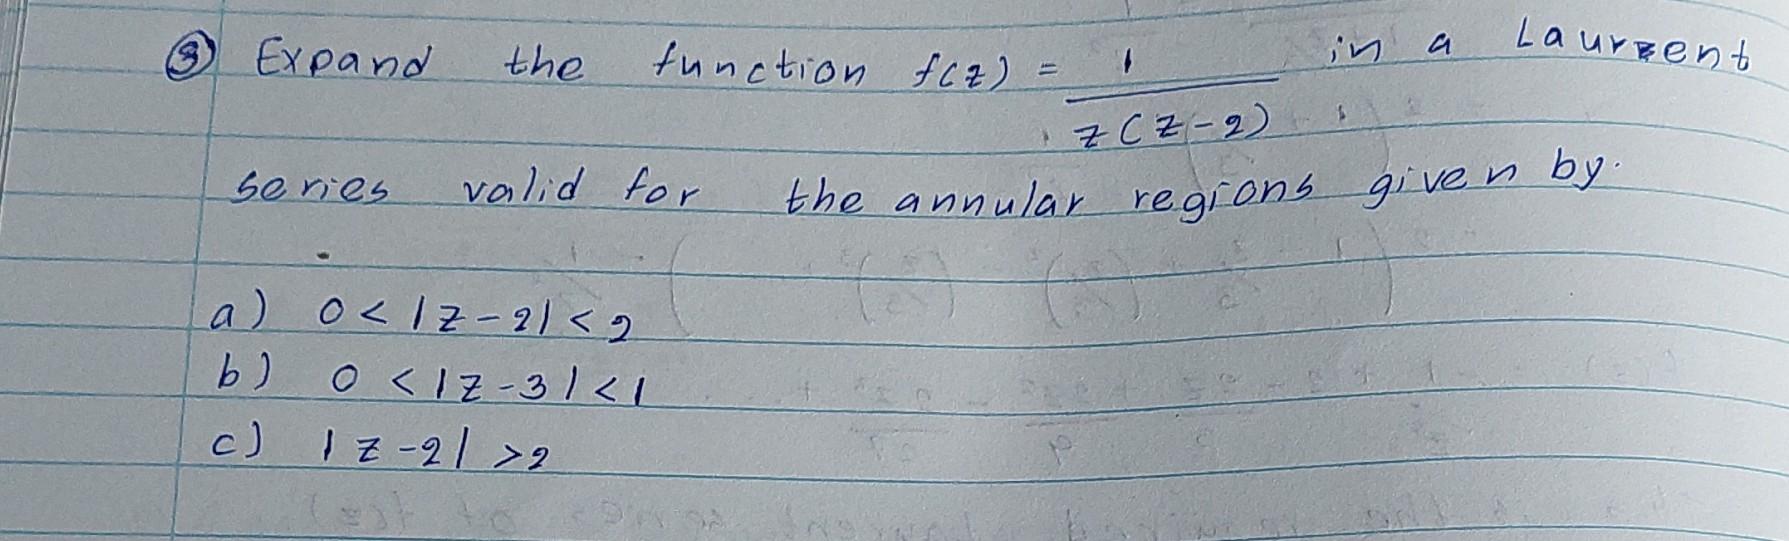 ③ Expand the function f(z) = 1 / z(z-2) in a Laurent
series valid for the annular regions given by.
a) 0 < |z-2| < 2
b) 0 < |z-3| < 1
c) |z-2| > 2